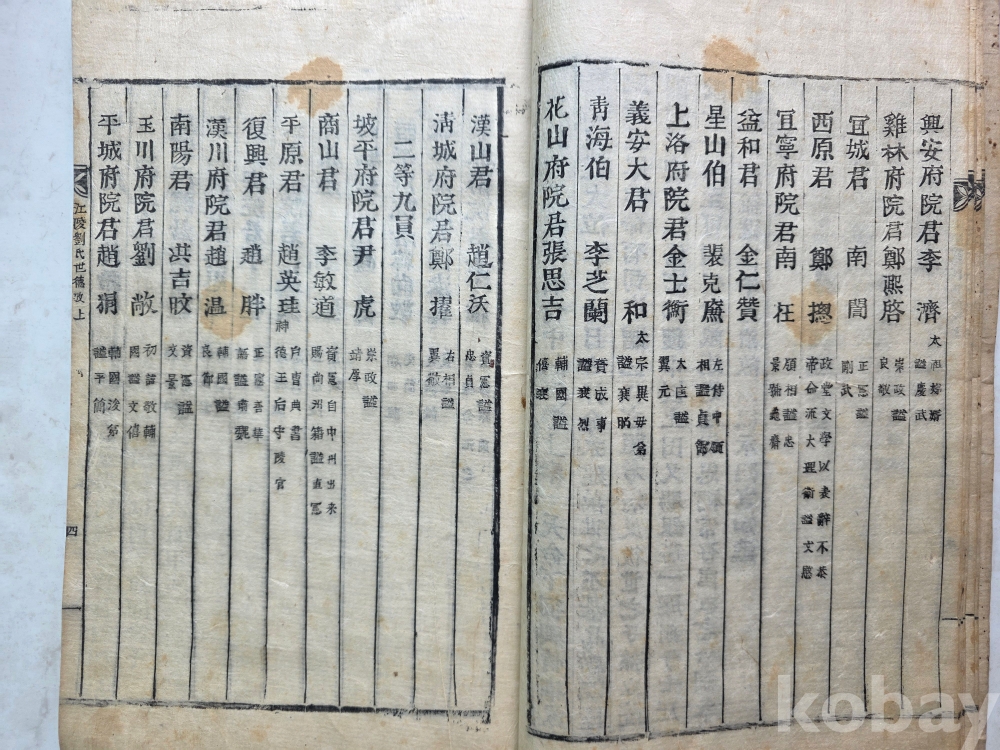 興安府院君李 濟 太祖婿 謚景武
雞林府院君鄭熙啓 崇政謚 良敬
宜城君 南 誾 正憲謚 剛武
西原君 鄭 摠 政堂文學以表辭不恭 帝命 大理衛謚文愍
宜寧府院君南 在 領相謚忠 景號龜齋
益和君 金仁贊
星山伯 裴克廉 左侍中領 相謚貞節
上洛府院君金士衡 左匡謚 翼元
義安大君 和 太宗異母弟 謚襄昭
靑海伯 李芝蘭 贊成事 謚襄烈
花山府院君張思吉 輔國謚 僖襄
漢山君 趙仁沃 資憲謚 忠貞
淸城府院君鄭 擢 右相謚 翼敬
二等九員
坡平府院君尹 虎 崇政謚 靖厚
商山君 李敏道 資憲自中州出來 賜尚州籍謚直憲
平原君 趙英珪 神德王后守陵官 戶曹典書
復興君 趙 胖 正憲 謚肅魏
漢川府院君趙 温 輔國謚 良節
南陽君 洪吉旼 資憲謚 文景
玉川府院君劉 敞 初名敬輔 國文謚文僖
平城府院君趙 狷 輔國浚弟 謚平簡
江陵劉氏世德攷 上
四
kobay